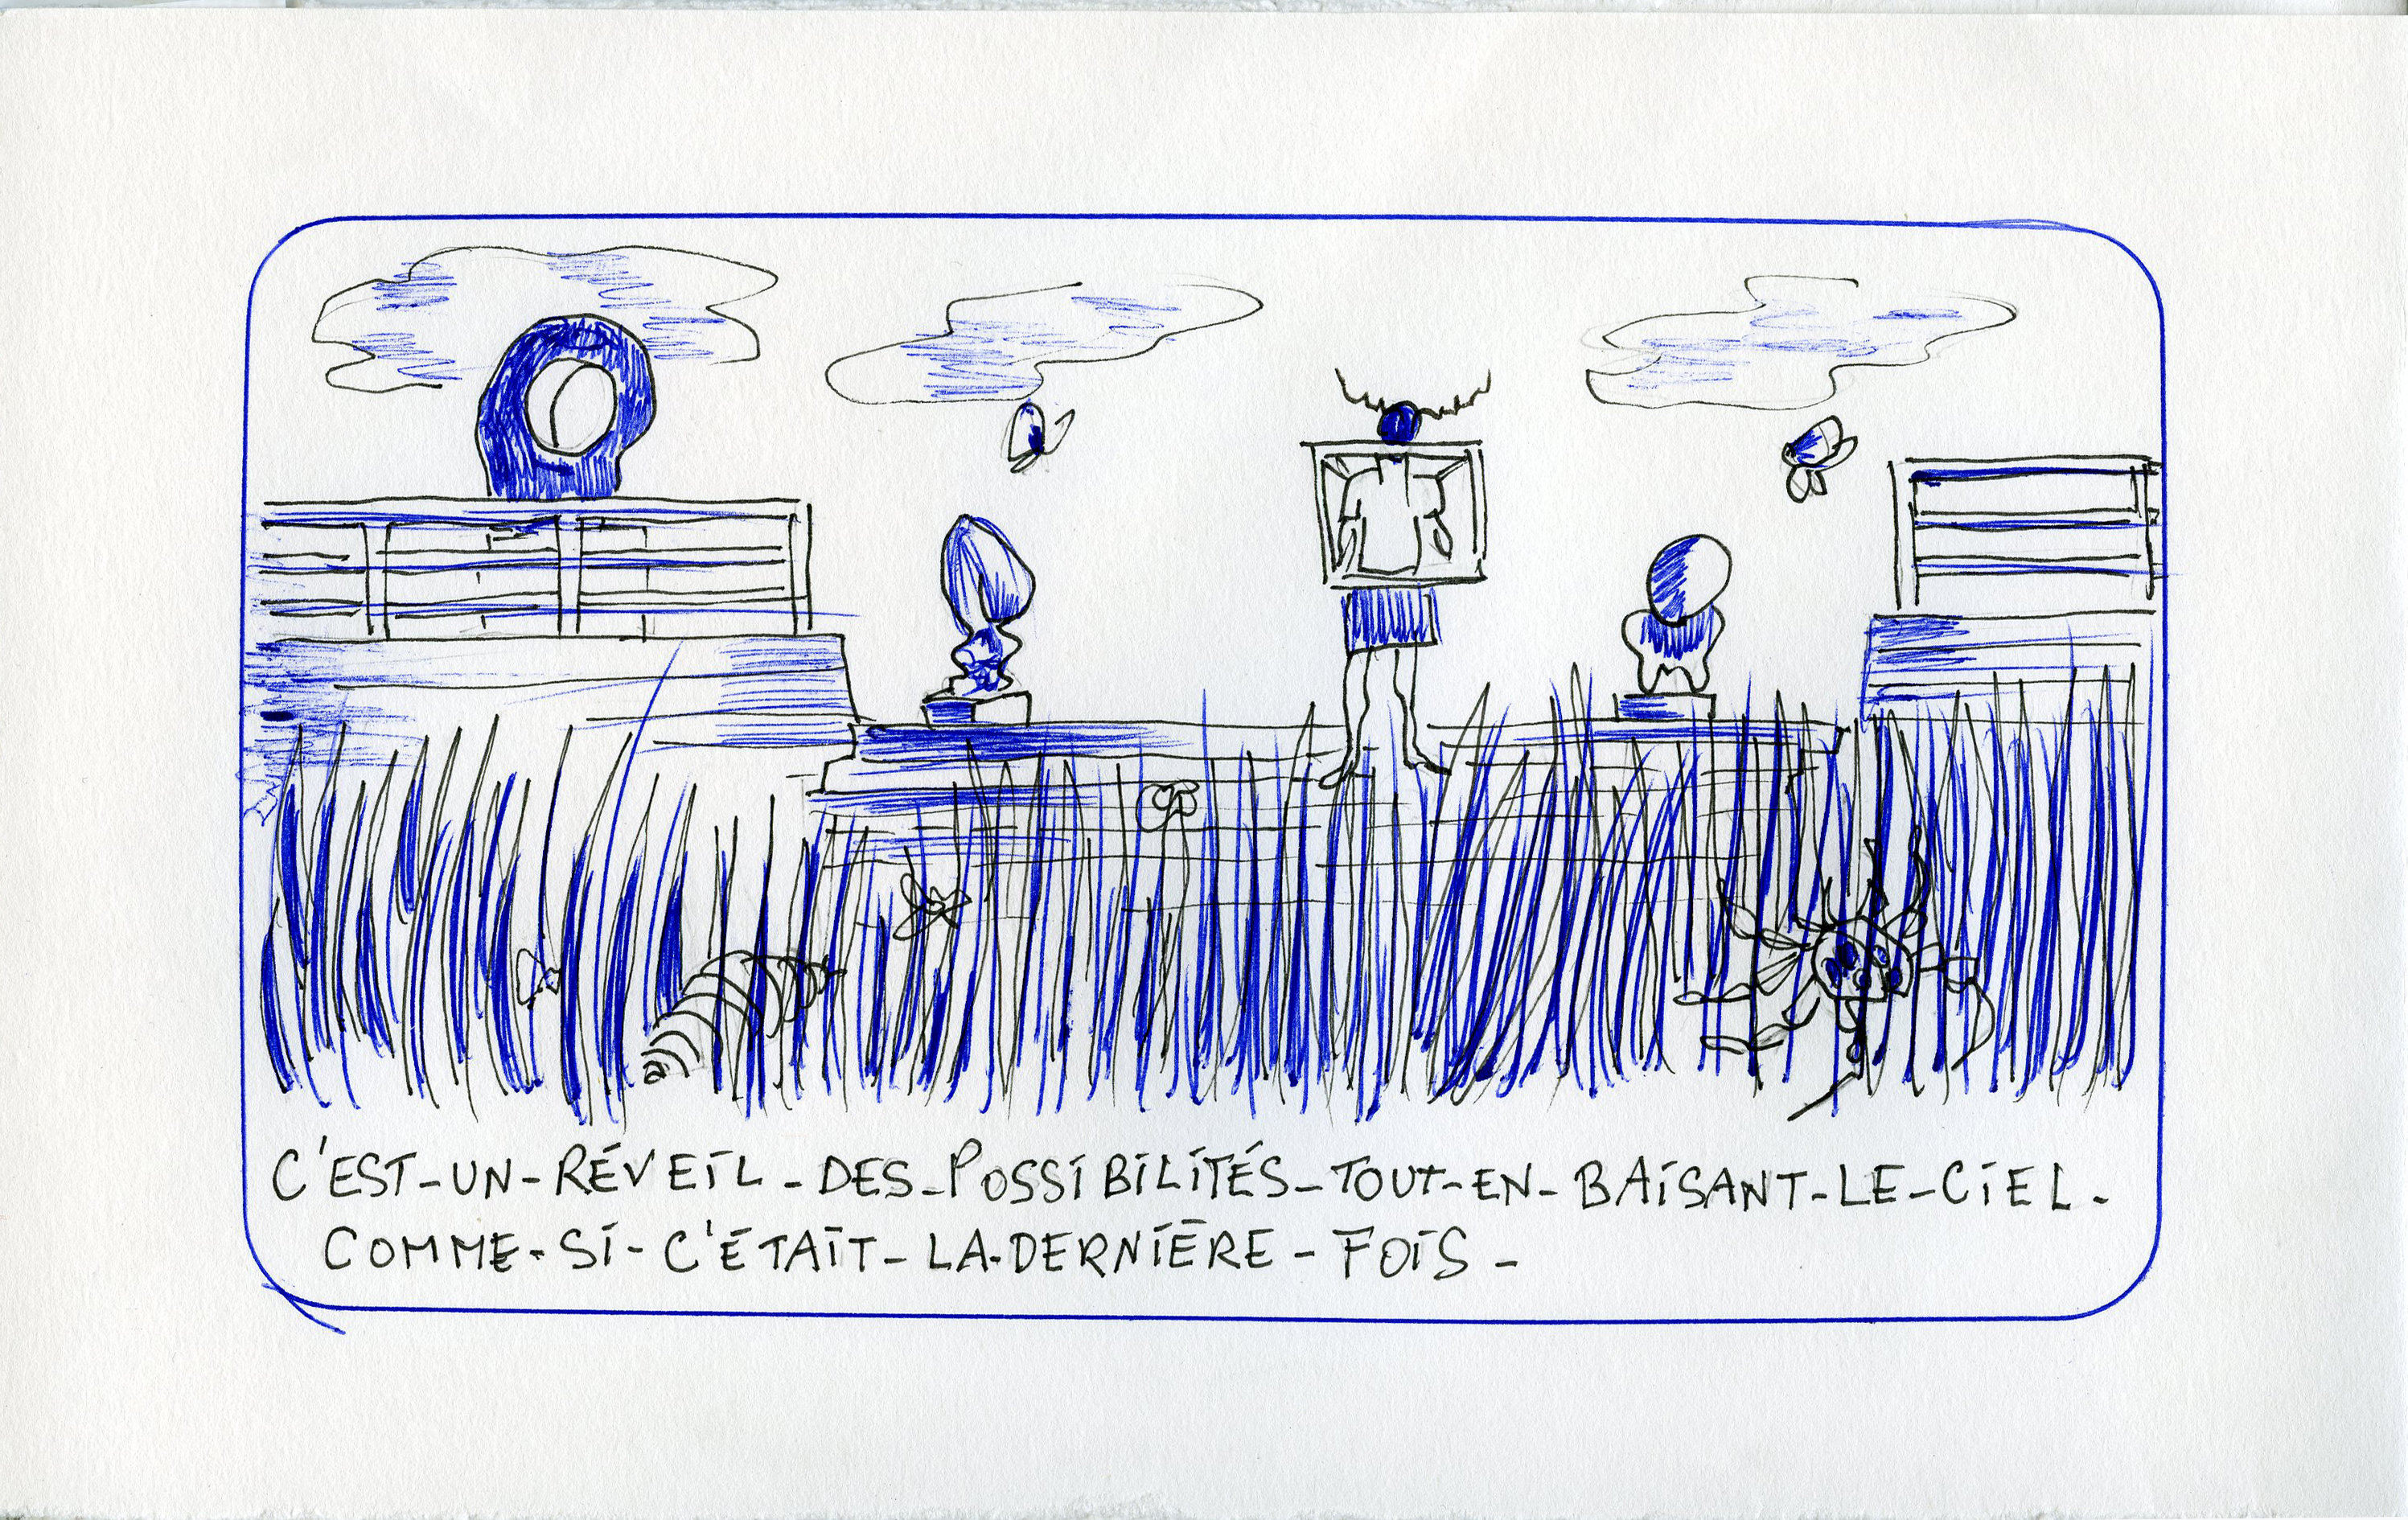 C'EST-UN-RÉVEIL-DES-POSSIBILITÉS-TOUT-EN-BAISANT-LE-CIEL-
COMME-SI-C'ÉTAIT-LA-DERNIÈRE-FOIS-